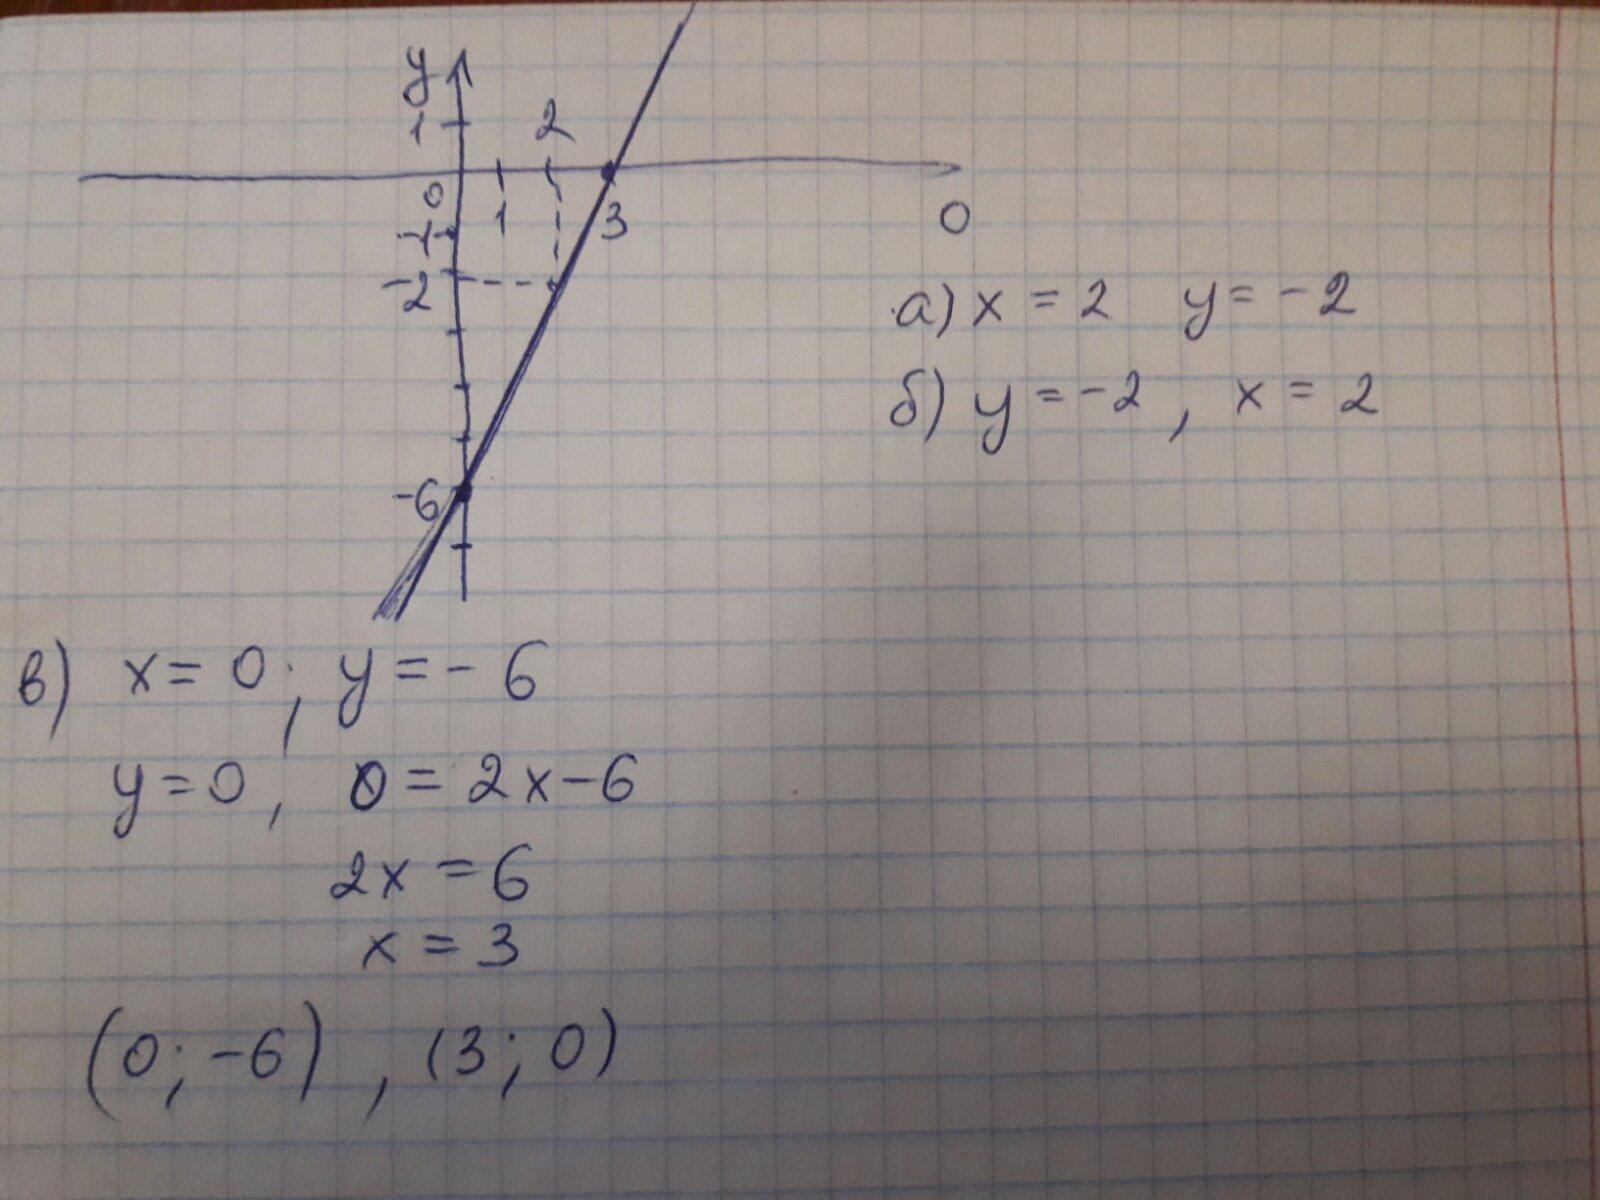 y
1
2
0
1
3
-1
0
-2
-6
а) x = 2 y = -2
б) y = -2, x = 2
в) x = 0; y = -6
y = 0, 0 = 2x - 6
2x = 6
x = 3
(0; -6), (3; 0)